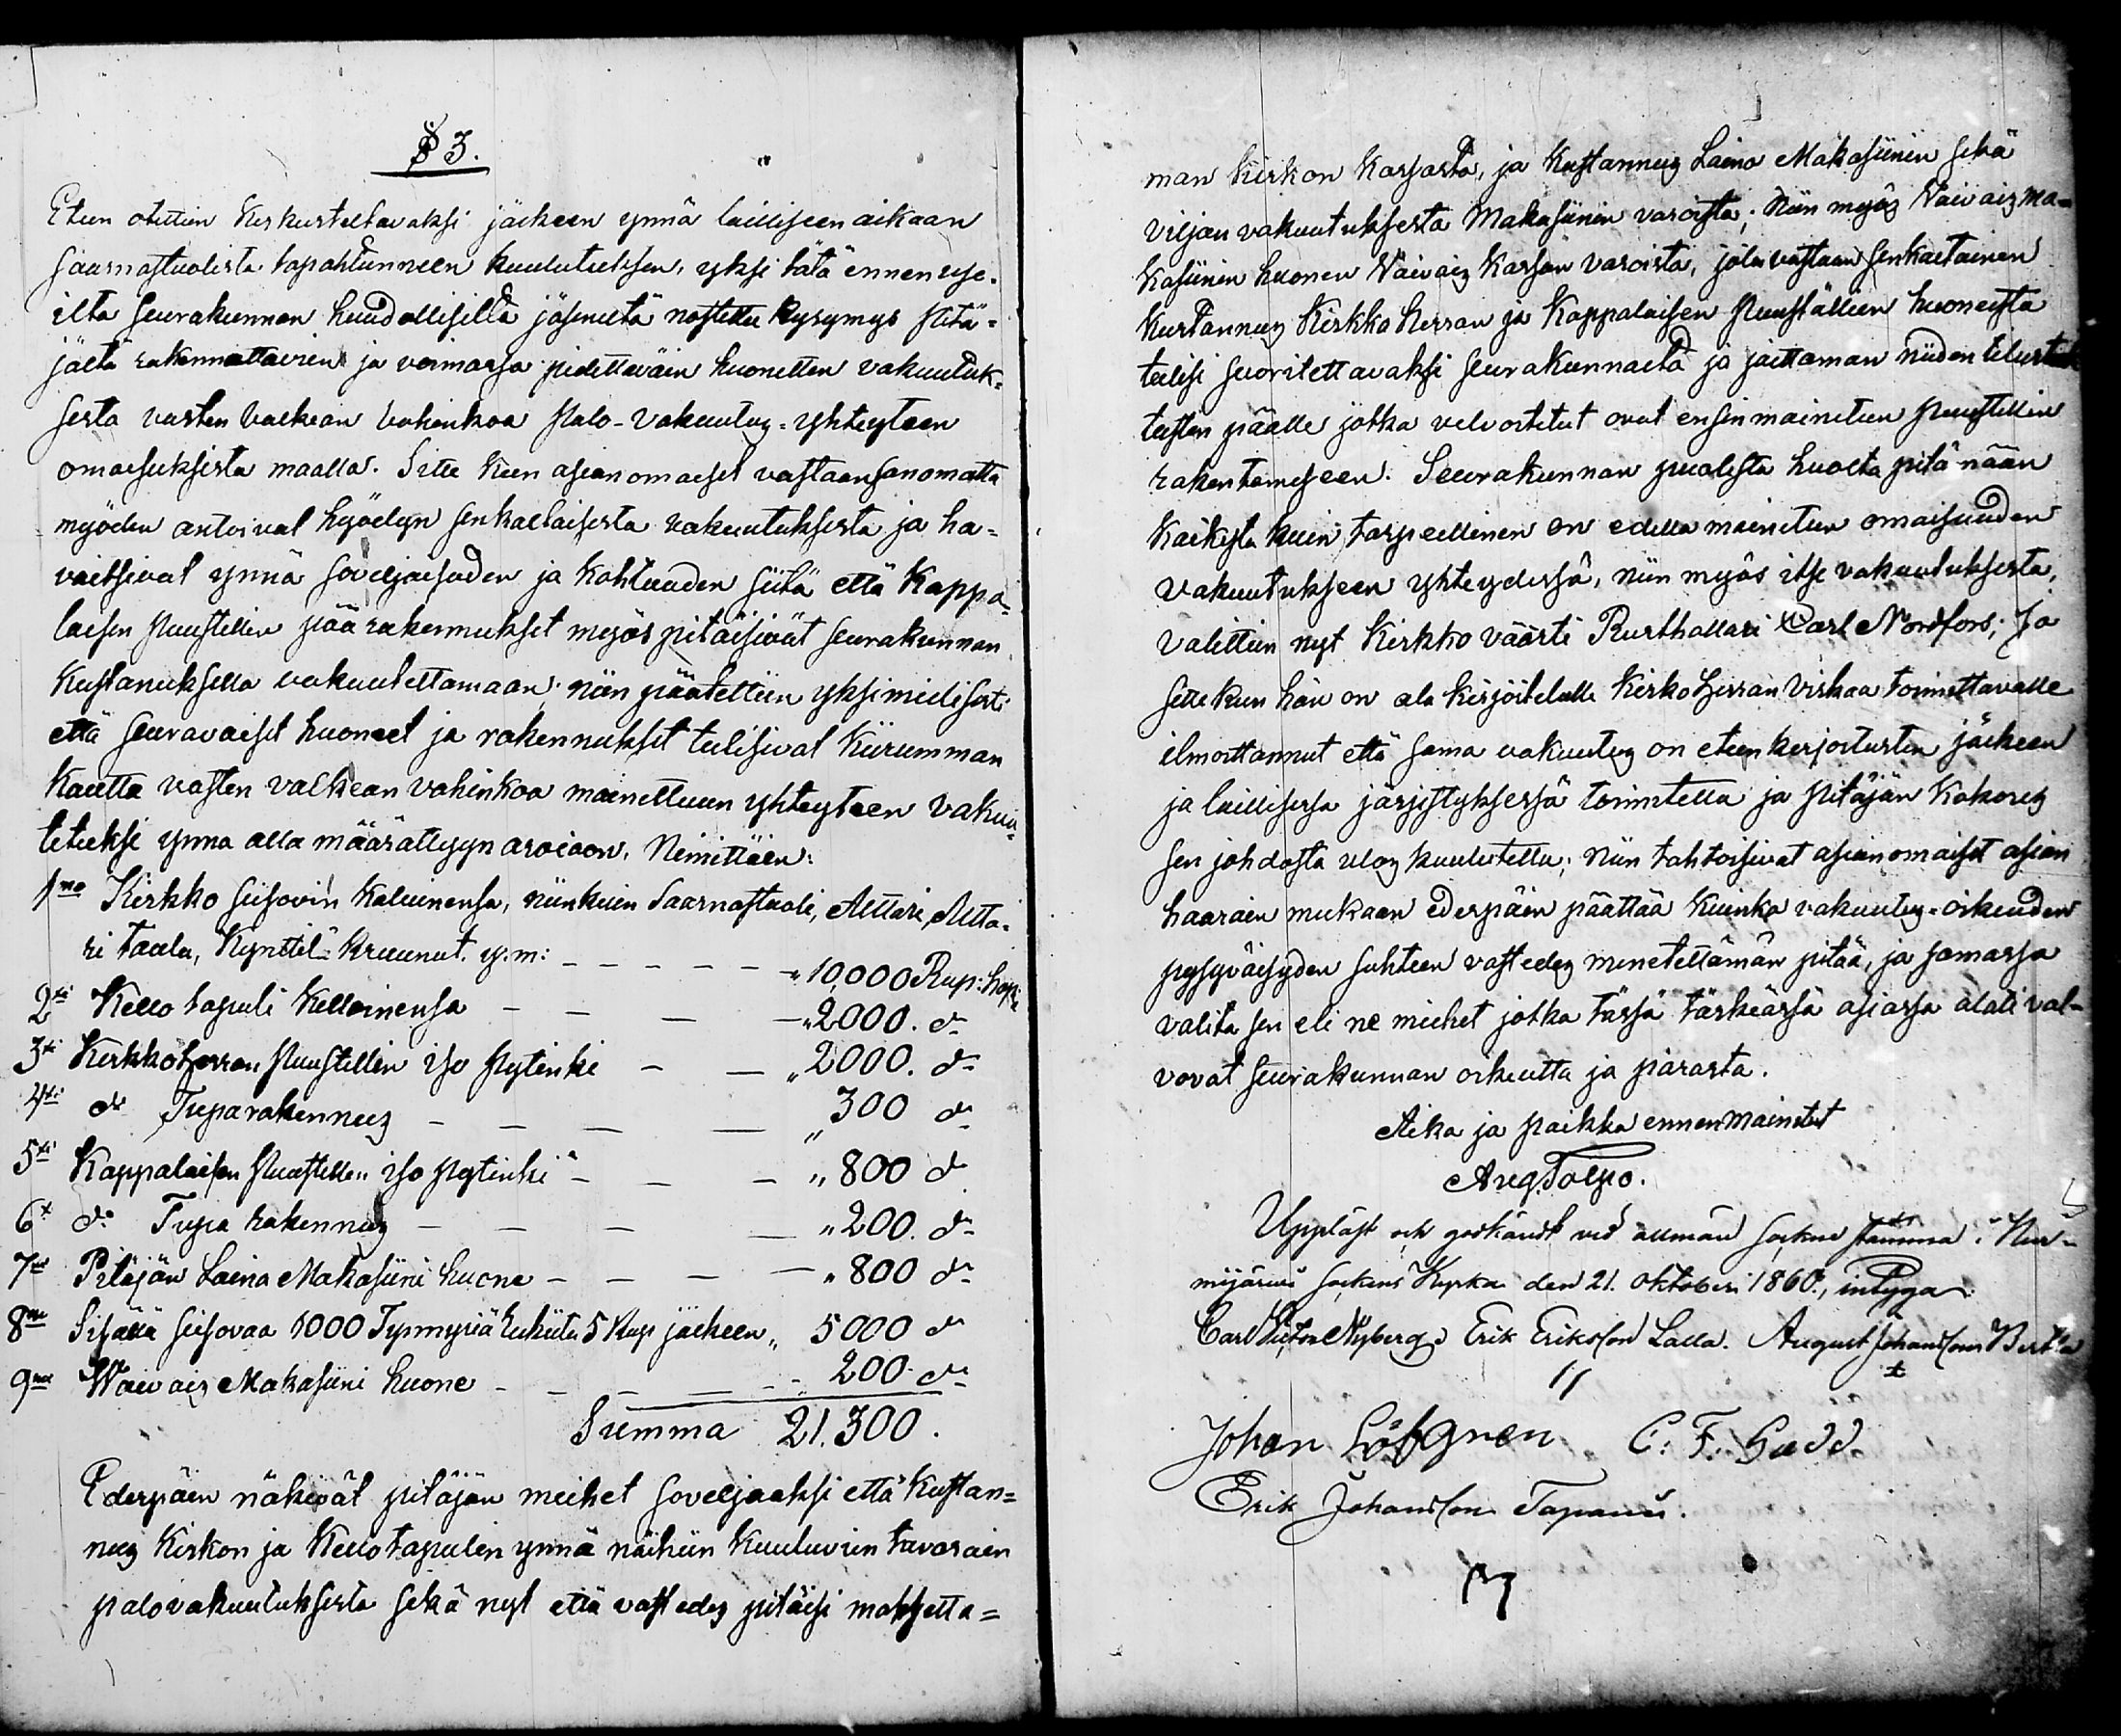 § 3.
Eteen otettiin Keskusteltavaksi jälkeen ynnä lailliseen aikaan
Saarnastuolista tapahtunneen kuulutuksen, yksi tätä ennen use-
ilta seurakunnan huudollisilta jäseneltä nostettu kysymys Pitä-
jältä rakennettavien ja voimassa pidettäväin huonetten vakuutuk-
sesta vasten valkean vahinkoa Palo-Vakuutus-yhteyteen
omaisuksista maalla. Sitte kuin asianomaiset vastaansanomatta
myöden antoivat hyödyn senkaltaisesta vakuutuksesta ja ha-
vaitsivat ynnä soveljaisuden ja kohtuuden siitä että Kappa-
laisen Puustellin päärakennukset myös pitäisivät seurakunnan
Kustanuksella vakuutettamaan; niin päätettiin yksimielisesti
että seuravaiset huoneet ja rakennukset tulisivat Kiirumman
Kautta vasten valkean vahinkoa mainittuun yhteyteen vakuu-
tetuksi ynna alla määrättyyn arvioon, Nimittäin:
1mo Kirkko seisovin Kaluinensa, niinkuin Saarnastuoli, Alttari, Altta-
ri taalu, Kynttil-Kruunut. y.m: - - - - - - „ 10,000 Rup: hop:
2ksi Kello tapuli Kelloinensa - - - - „ 2000. do
3ksi KirkkoHerran Puustellin iso Pytinki - - „ 2000. do
4ksi do Tuparakennus - - - - „ 300 do
5ksi Kappalaisen Puustellin iso Pytinki - - - „ 800 do
6x do Tupa rakennus - - - - „ 200. do
7mo Pitäjän Laina Makasiini huone - - - - „ 800 do
8mo Sisällä seisovaa 1000 Tynnyriä Rukiita 5 Rup jälkeen „ 5000 do
9mo Waivais Makasiini huone - - - - - - 200 do
Summa 21.300.
Ederpäin näkivät pitäjän miehet soveljaaksi että Kustan-
nus Kirkon ja Kellotapulin ynnä näihin kuuluvien tavarain
palovakuutuksesta sekä nyt että vast edes pitäisi maksetta-
man Kirkon Kassasta, ja Kustannus Laina Makasiinin sekä
viljan vakuutuksesta Makasiinin varoista; Niin myös Vaivais Ma-
kasiinin huonen Vaivais Kassan varoista, jota vastaan senkaltainen
Kustannus Kirkko Herran ja Kappalaisen Puuställein huoneista
tulisi suoritettavaksi seurakunnalta ja jaettaman niiden tilust
tusten päälle jotka velvoitetut ovat ensinmainitun Puustellin
rakentamiseen. Seurakunnan puolesta huolta pitämään
Kaikista kuin tarpeellinen on edellä mainitun omaisuuden
vakuutukseen yhteydessä, niin myös itse vakuutuksesta,
valittiin nyt Kirkko väärti Rusthollari Carl Nordfors; Ja
sitte kun hän on ala kirjoitetulle Kirko Herran Virkaa toimittavalle
ilmoittannut että sama vakuutus on eteen kirjoitusten jälkeen
ja laillisessa järjestyksessä toimitettu ja Pitäjän Kokouk
sen johdosta ulos kuulutettu; niin tahtoisivat asianomaiset asian
haarain mukaan ederpäin päättää kuinka vakuutus-oikeuden
pysyväisyden suhteen vast edes menetettämän pitää, ja samassa
valita sen eli ne miehet jotka tässä tärkeässä asiassa alati val-
vovat seurakunnan oikeutta ja parasta.
Aika ja paikka ennenmainitut
Aug. Tolpo.
Uppläst och godkändt vid allmän Sockne stämma i Nur-
mijärvi Sockens Kyrka den 21. Oktober 1860., intyga
Carl Gustav Nyberg, Erik Eriksson Lalla. August Johansson Bert:la
Johan Löfgren C. F. Gadd.
Erik Johansson Tapani.